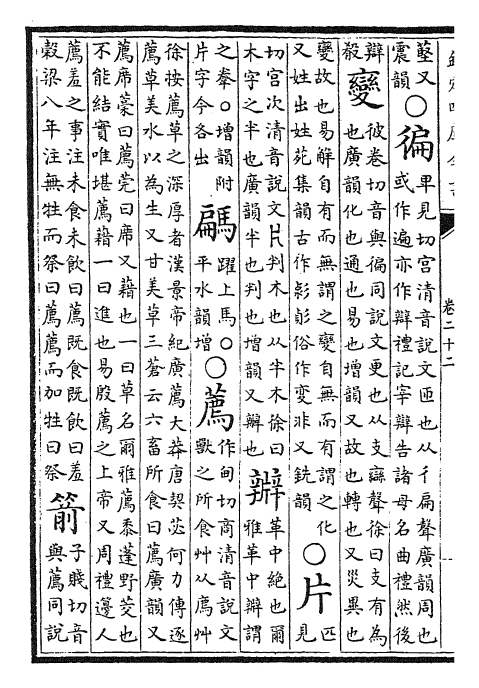 卷二十二
又
震韻
○徧
卑見切宮清音說文匝也从彳扁聲廣韻周也
或作遍亦作辯禮記宰辯告諸母名曲禮然後
辯
殽
變
彼卷切音與徧同說文更也从攴䜌聲徐曰攴有為
也廣韻化也通也易也增韻又故也轉也又災異也
變故也易解自有而無謂之變自無而有謂之化
又姓出姓苑集韻古作彰彭俗作变非又銑韻
○片
匹
見
切宮次清音說文片判木也从半木徐曰
木字之半也廣韻半也判也增韻又瓣也
辧
革中絶也爾
雅革中辧謂
之𢍏○增韻附
片字今各出
騗
躍上馬○
平水韻增
○薦
作甸切商清音說文
獸之所食艸从廌艸
徐按薦草之深厚者漢景帝紀廣薦大莽唐契苾何力傳逐
薦草美水以為生又甘美草三蒼云六畜所食曰薦廣韻又
薦席藁曰薦莞曰席又藉也一曰草名爾雅薦黍蓬野茭也
不能結實唯堪薦藉一曰進也易殷薦之上帝又周禮籩人
薦羞之事注未食未飲曰薦既食既飲曰羞
穀梁八年注無牲而祭曰薦薦而加牲曰祭
箭
子賤切音
與薦同說